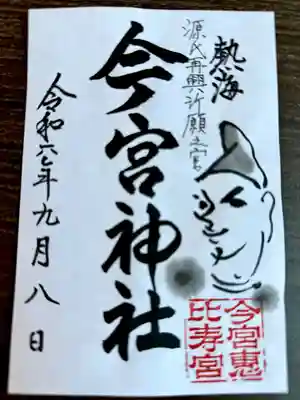 熱海
源氏再興祈願之宮
今宮神社
令和六年九月八日
今宮惠
比寿宮